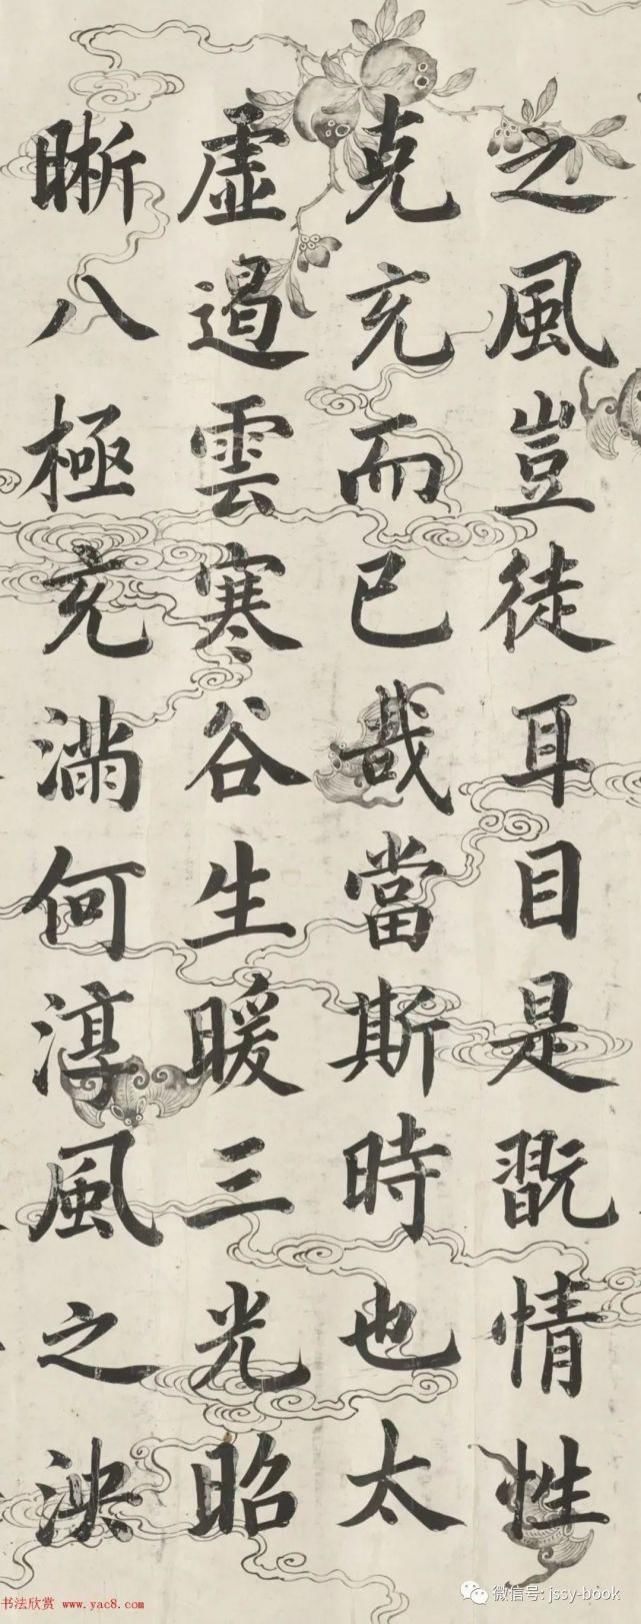 之風豈徒耳目是翫情性
克充而已哉當斯時也太
虛遏雲寒谷生暖三光昭
晰八極充滿何淳風之泱
书法欣赏 www.yac8.com
微信号: jssy-book